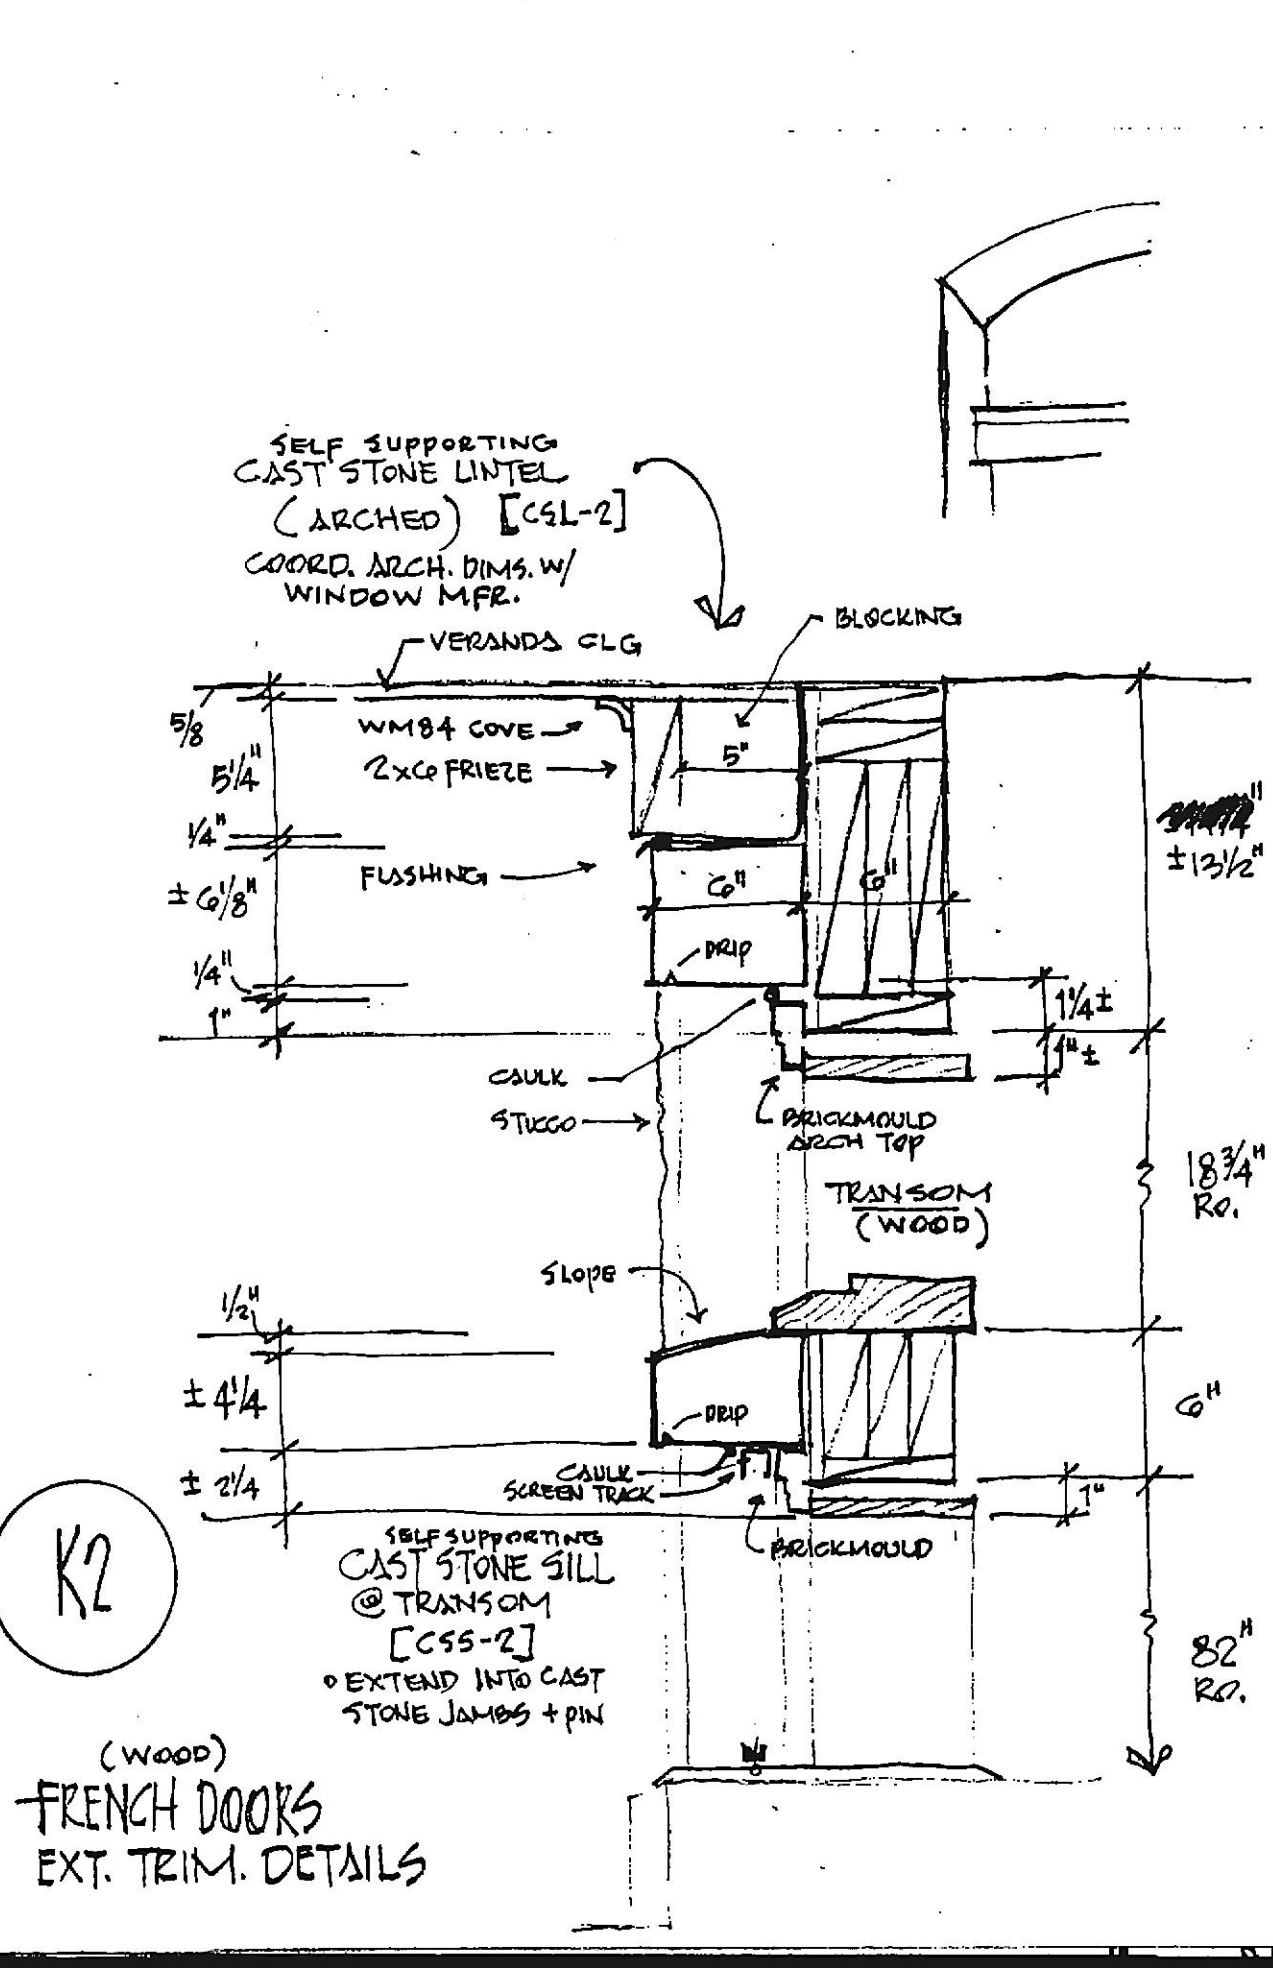 SELF SUPPORTING
CAST STONE LINTEL
(ARCHED) [CSL-2]
COORD. ARCH. DIMS. W/
WINDOW MFR.
BLOCKING
VERANDA CLG
5/8
WM84 COVE
5"
5 1/4"
2x6 FRIEZE
1/4"
±13 1/2"
FLASHING
± 6 1/8"
6"
6"
DRIP
1/4"
1"
1 1/4 ±
1" ±
CAULK
STUCCO
BRICKMOULD
ARCH TOP
18 3/4"
RO.
TRANSOM
(WOOD)
SLOPE
1/2"
± 4 1/4
6"
DRIP
CAULK
SCREEN TRACK
± 2 1/4
1"
BRICKMOULD
K2
SELF SUPPORTING
CAST STONE SILL
@ TRANSOM
[CSS-2]
EXTEND INTO CAST
STONE JAMBS + PIN
82"
RO.
(WOOD)
FRENCH DOORS
EXT. TRIM. DETAILS